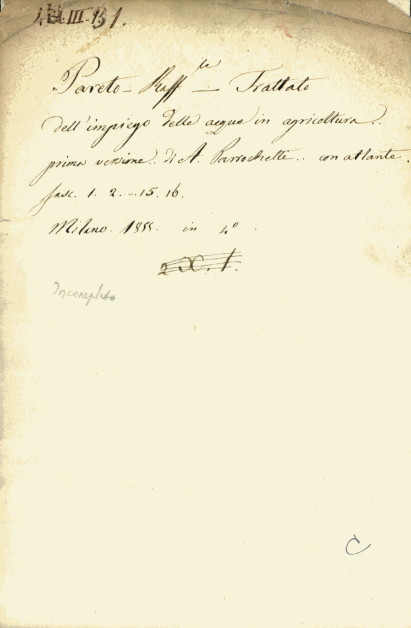 III. 131.
Pareto - Raff le - Trattato
dell'impiego delle acque in agricoltura..
prima versione.. di A. Parrochetti.. con atlante.
fasc. 1. 2. .. 15. 16.
Milano. 1855. in 4°.
2 X. 1.
Incompleto
C